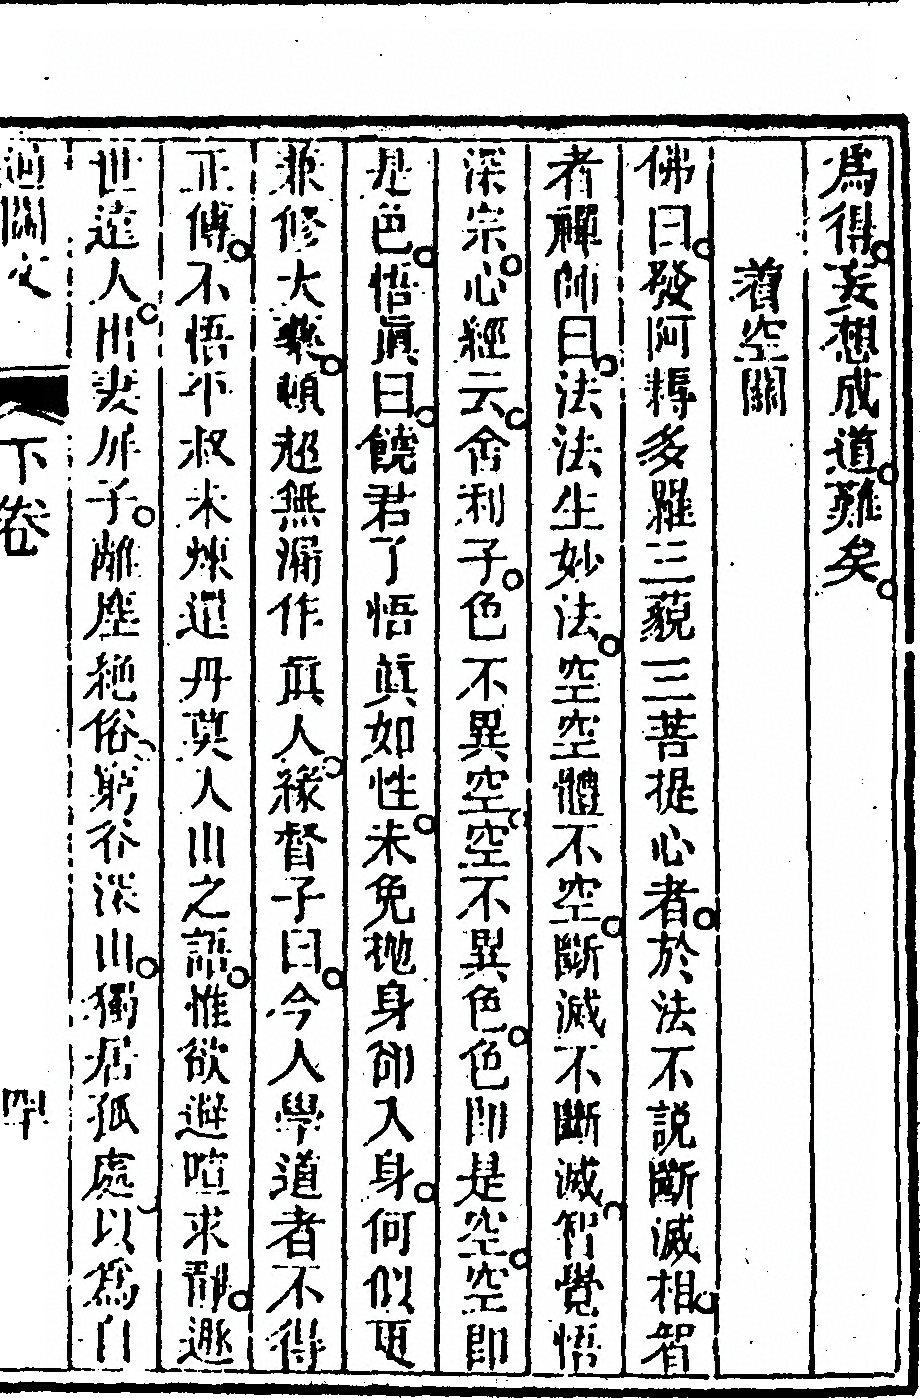 為得妄想成道難矣
着空關
佛曰發阿耨多羅三藐三菩提心者於法不說斷滅相智
者禪師曰法法生妙法空空體不空斷滅不斷滅智覺悟
深宗心經云舍利子色不異空空不異色色即是空空即
是色悟眞曰饒君了悟眞如性未免拋身卻入身何似更
兼修大藥頓超無漏作眞人緣督子曰今人學道者不得
正傳不悟平叔未煉還丹莫入山之語惟欲避喧求靜遯
世違人出妻屏子離塵絕俗窮谷深山獨居孤處以為自
通關文
下卷
四十